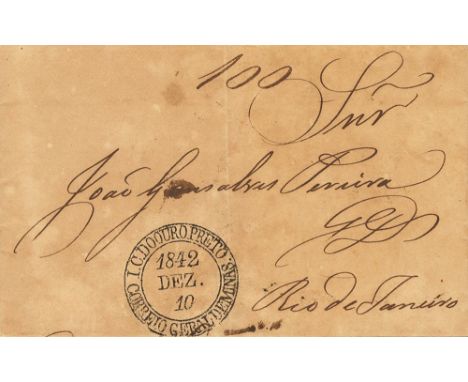 100
Snr̃
João Gonsalves Pereira
GD
Rio de Janeiro
I.C.DOOURO.PRETO.
CORREIO GERAL DE MINAS.
1842
DEZ.
10